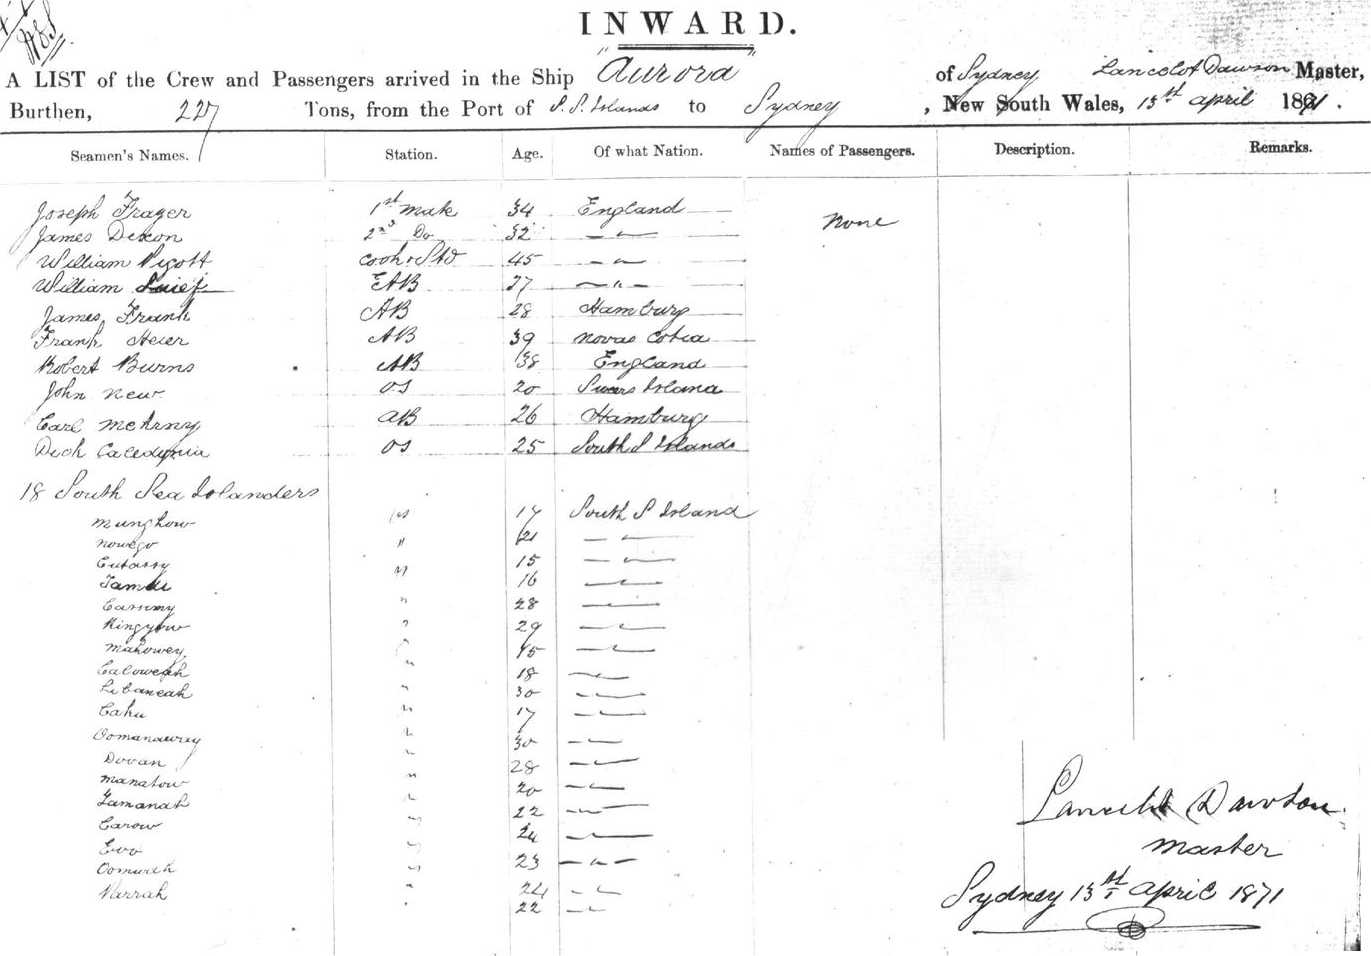 INWARD.
A LIST of the Crew and Passengers arrived in the Ship "Aurora" of Sydney Lancelot Dawson Master,
Burthen, 227 Tons, from the Port of S. S. Islands to Sydney, New South Wales, 13st April 1871.
Seamen's Names. Station. Age. Of what Nation. Names of Passengers. Description. Remarks.
Joseph Frazer 1st Mate 34 England None
James Dixon 2nd Do 32 — " —
William Pigott Cook & Std 45 — " —
William EAB 27 — " —
James Frank AB 28 Hamburg
Frank Heier AB 39 Novas Cotia
Robert Burns AB 38 England
John New OS 20 Island
Carl McArny AB 26 Hamburg
Dick Caledonia OS 25 South S Islands
18 South Sea Islanders
Munghow OS 17 South S Island
Nowego " 21 — " —
Eutassy " 15 — " —
Tamdi " 16 — " —
Carumy " 28 — " —
Kingyow " 29 — " —
Mahowey " 15 — " —
Caloweah " 18 — " —
Libaneah " 30 — " —
Cahu " 17 — " —
Oomanawey " 30 — " —
Dovan " 28 — " —
Manatow " 20 — " —
Tamanah " 22 — " —
Carow " 24 — " —
Evo " 23 — " —
Oomurah " 24 — " —
Narrah " 22 — " —
Lancelot Dawson
Master
Sydney 13st April 1871